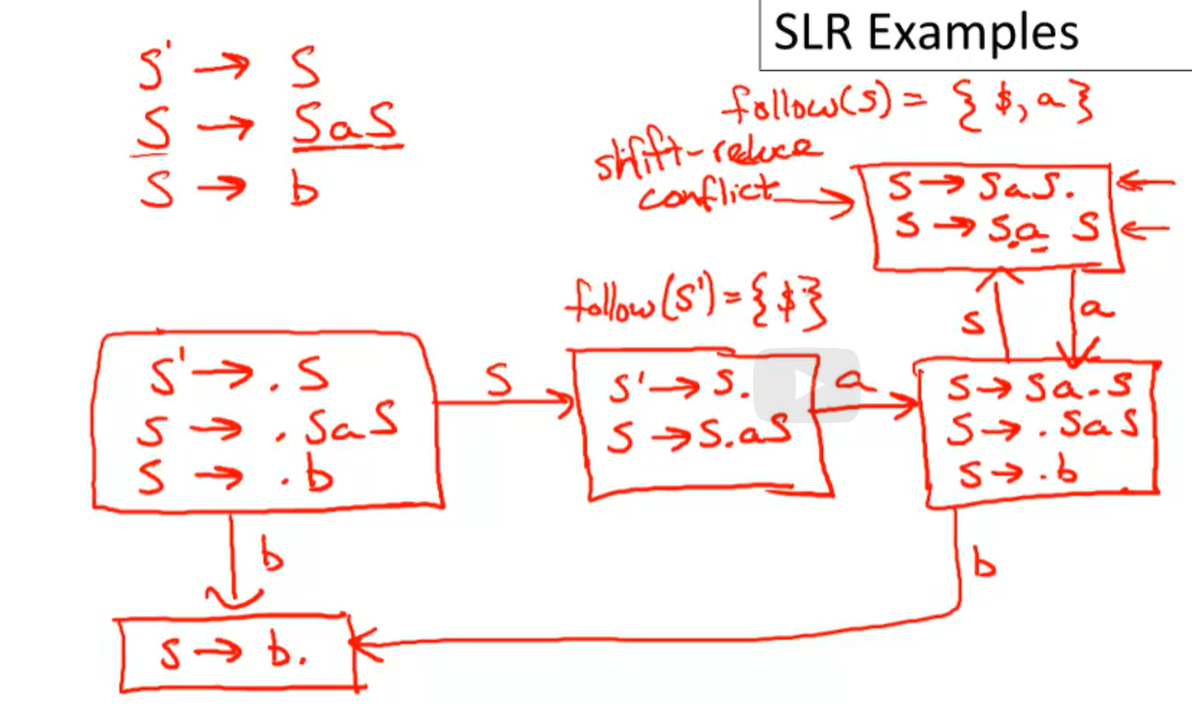 SLR Examples
S' → S
S → SaS
S → b
follow(S) = { $, a }
shift-reduce
conflict
S → SaS.
S → S.a S
follow(S') = { $ }
S
a
S' → . S
S → . SaS
S → . b
S
S' → S.
S → S.aS
a
S → Sa.S
S → . SaS
S → . b
b
b
S → b.